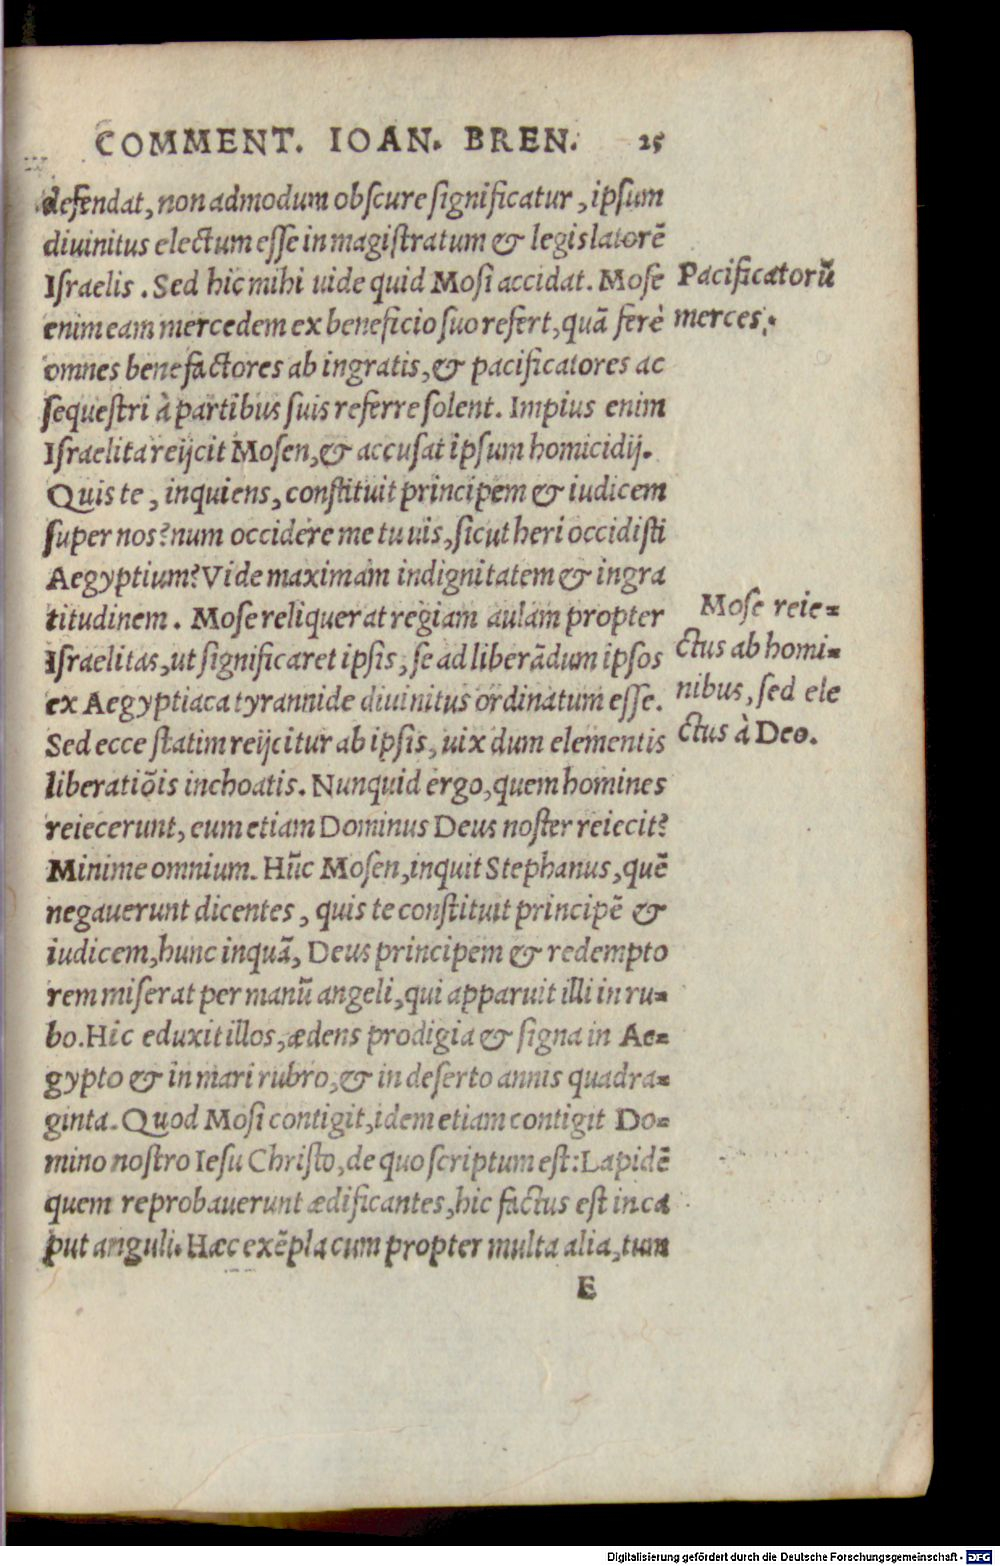 COMMENT. IOAN. BREN. 25
defendat, non admodum obscure significatur, ipsum
diuinitus electum esse in magistratum & legislatorē
Israelis. Sed hic mihi uide quid Mosi accidat. Mose
enim eam mercedem ex beneficio suo refert, quā ferè
omnes benefactores ab ingratis, & pacificatores ac
sequestri à partibus suis referre solent. Impius enim
Israelita reijcit Mosen, & accusat ipsum homicidij.
Quis te, inquiens, constituit principem & iudicem
super nos? num occidere me tu uis, sicut heri occidisti
Aegyptium? Vide maximam indignitatem & ingra
titudinem. Mose reliquerat regiam aulam propter
Israelitas, ut significaret ipsis, se ad liberādum ipsos
ex Aegyptiaca tyrannide diuinitus ordinatum esse.
Sed ecce statim reijcitur ab ipsis, uix dum elementis
liberatiōis inchoatis. Nunquid ergo, quem homines
reiecerunt, eum etiam Dominus Deus noster reiecit?
Minime omnium. Hūc Mosen, inquit Stephanus, quē
negauerunt dicentes, quis te constituit principē &
iudicem, hunc inquā, Deus principem & redempto
rem miserat per manū angeli, qui apparuit illi in ru-
bo. Hic eduxit illos, ædens prodigia & signa in Ae-
gypto & in mari rubro, & in deserto annis quadra-
ginta. Quod Mosi contigit, idem etiam contigit Do-
mino nostro Iesu Christo, de quo scriptum est: Lapidē
quem reprobauerunt ædificantes, hic factus est in ca
put anguli. Hæc exēpla cum propter multa alia, tum
E
Pacificatorū
merces.
Mose reie-
ctus ab homi-
nibus, sed ele
ctus à Deo.
Digitalisierung gefördert durch die Deutsche Forschungsgemeinschaft - DFG